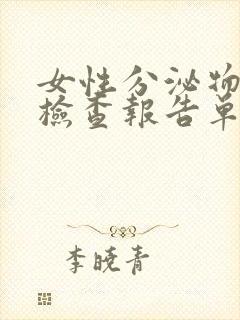 女性分泌物
檢查報告單
李曉青